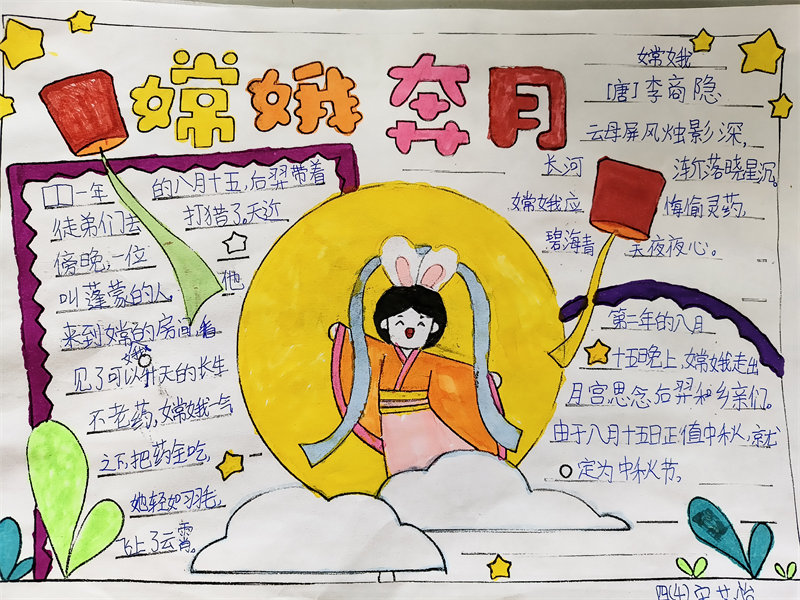 嫦娥奔月
一年 的八月十五,后羿带着
徒弟们去 打猎了。天近
傍晚,一位
叫蓬蒙的人, 他
来到嫦娥的房间,看
见了可以升天的长生
不老药,嫦娥一气
之下,把药全吃,
她轻如羽毛,
飞上了云霄。
嫦娥
[唐]李商隐
云母屏风烛影深,
长河 渐落晓星沉。
嫦娥应 悔偷灵药,
碧海青 天夜夜心。
第二年的八月
十五晚上,嫦娥走出
月宫思念后羿和乡亲们。
由于八月十五日正值中秋,就
定为中秋节。
四(4)